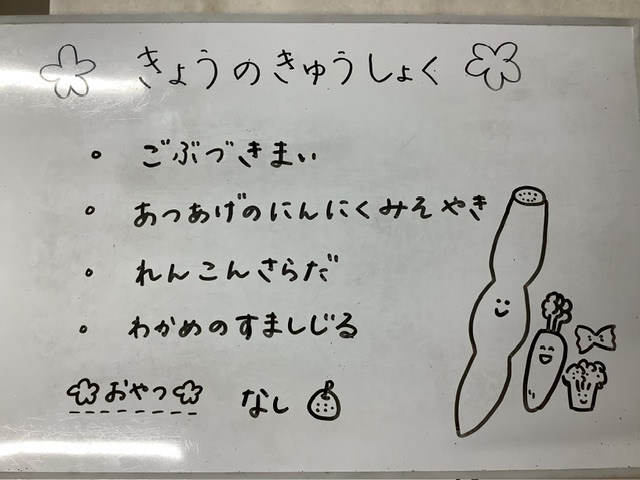 きょうのきゅうしょく
・ごぶづきまい
・あつあげのにんにくみそやき
・れんこんさらだ
・わかめのすましじる
おやつ なし